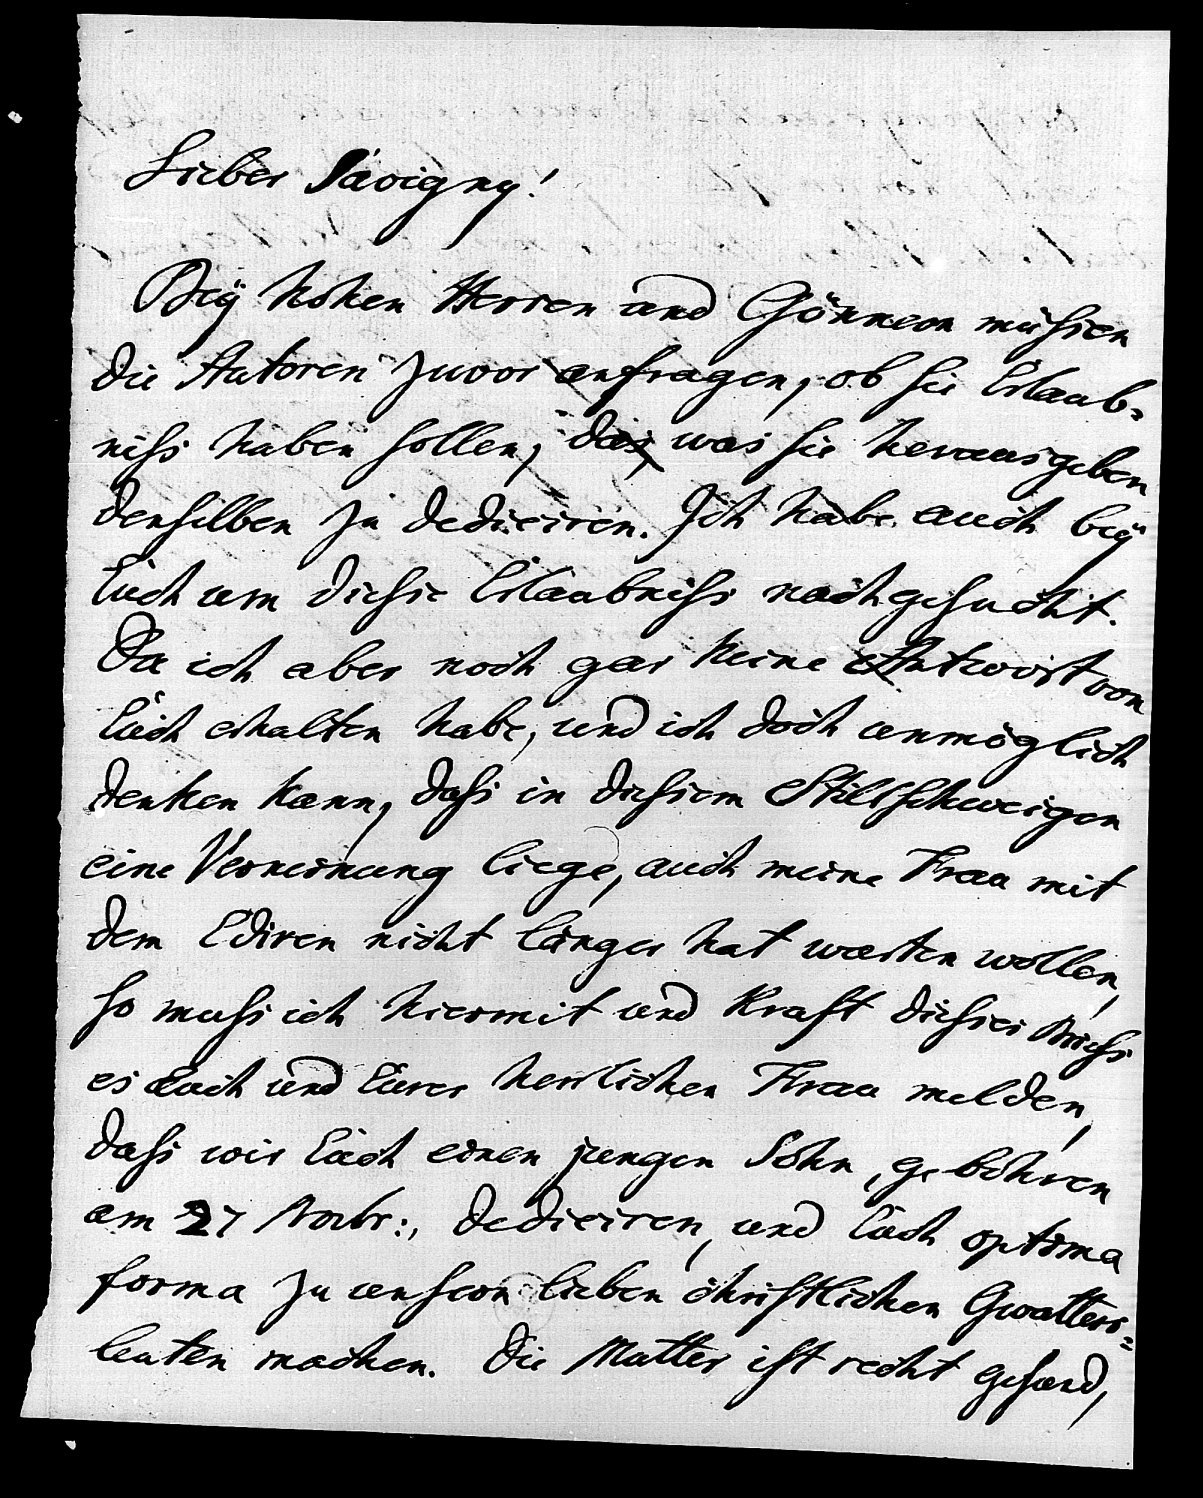 Lieber Savigny!
Bey hohen Herren und Gönnern müssen
die Autoren zuvor anfragen, ob sie Erlaub-
niss haben sollen, das, was sie herausgeben
denselben zu dediciren. Ich habe auch bey
Euch um diese Erlaubniss nachgesucht.
Da ich aber noch gar keine Antwort von
Euch erhalten habe, und ich doch unmöglich
denken kann, dass in diesem Stillschweigen
eine Verneinung liege, auch meine Frau mit
dem Ediren nicht länger hat warten wollen,
so muss ich hiermit und Kraft dieses Briefs
es Euch und Eurer herrlichen Frau melden,
dass wir Euch einen jungen Sohn, gebohren
am 27 Novbr:, dediciren, und Euch optima
forma zu unsern lieben christlichen Gevatters-
leuten machen. Die Mutter ist recht gesund,